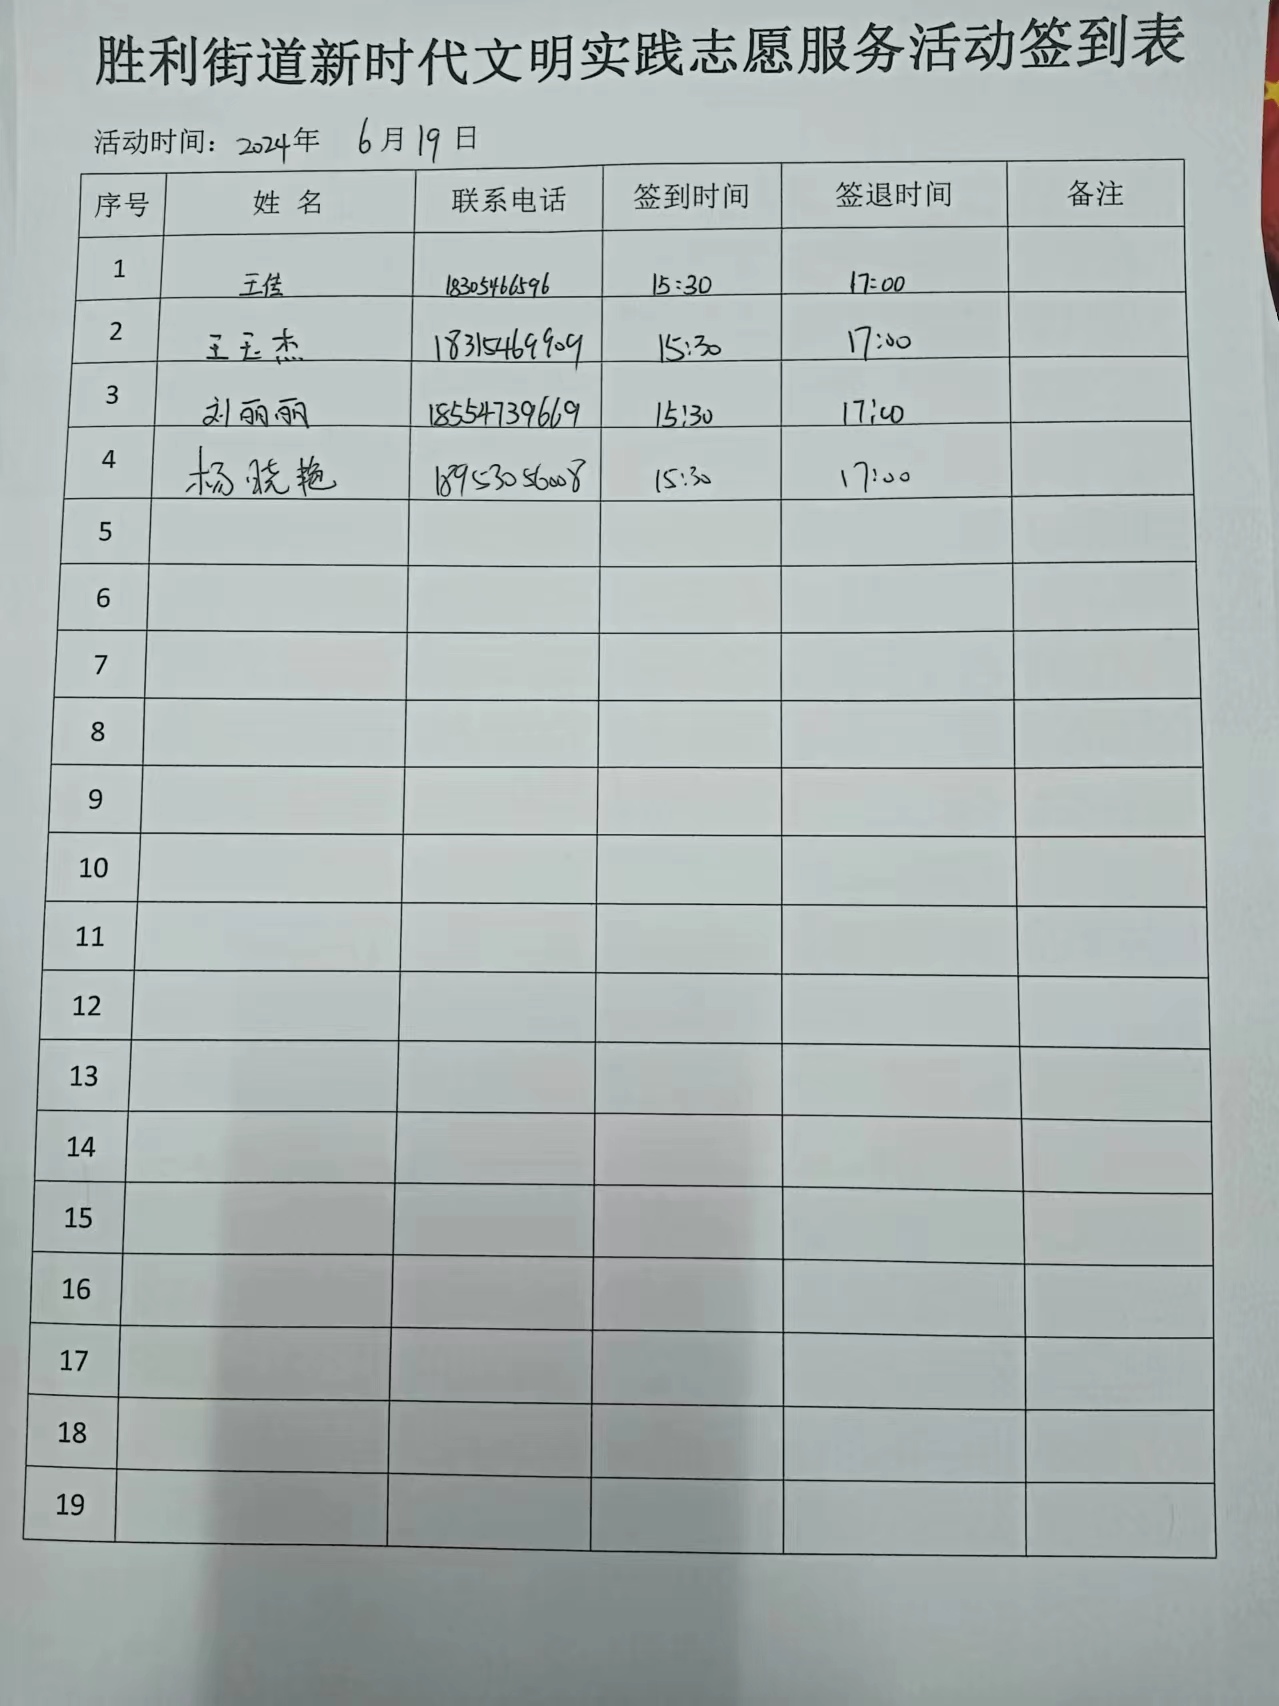 胜利街道新时代文明实践志愿服务活动签到表
活动时间：2024年 6月19日
序号 姓 名 联系电话 签到时间 签退时间 备注
1 王佳 18305466596 15:30 17:00
2 王玉杰 18315469909 15:30 17:00
3 刘丽丽 18554739669 15:30 17:00
4 杨晓艳 18953056008 15:30 17:00
5
6
7
8
9
10
11
12
13
14
15
16
17
18
19